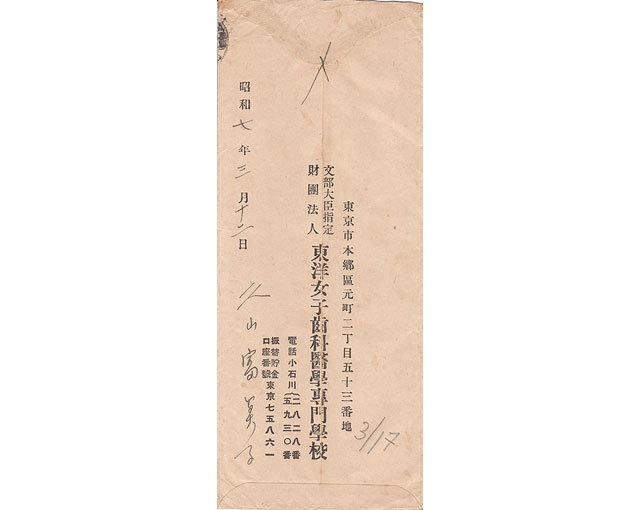 東京市本郷區元町二丁目五十三番地
文部大臣指定
財團法人
東洋女子齒科醫學專門學校
電話小石川(二八二八番
五九三〇番
振替貯金
口座番號
東京七五八六一
3/17
昭和七年三月十二日
山富美子